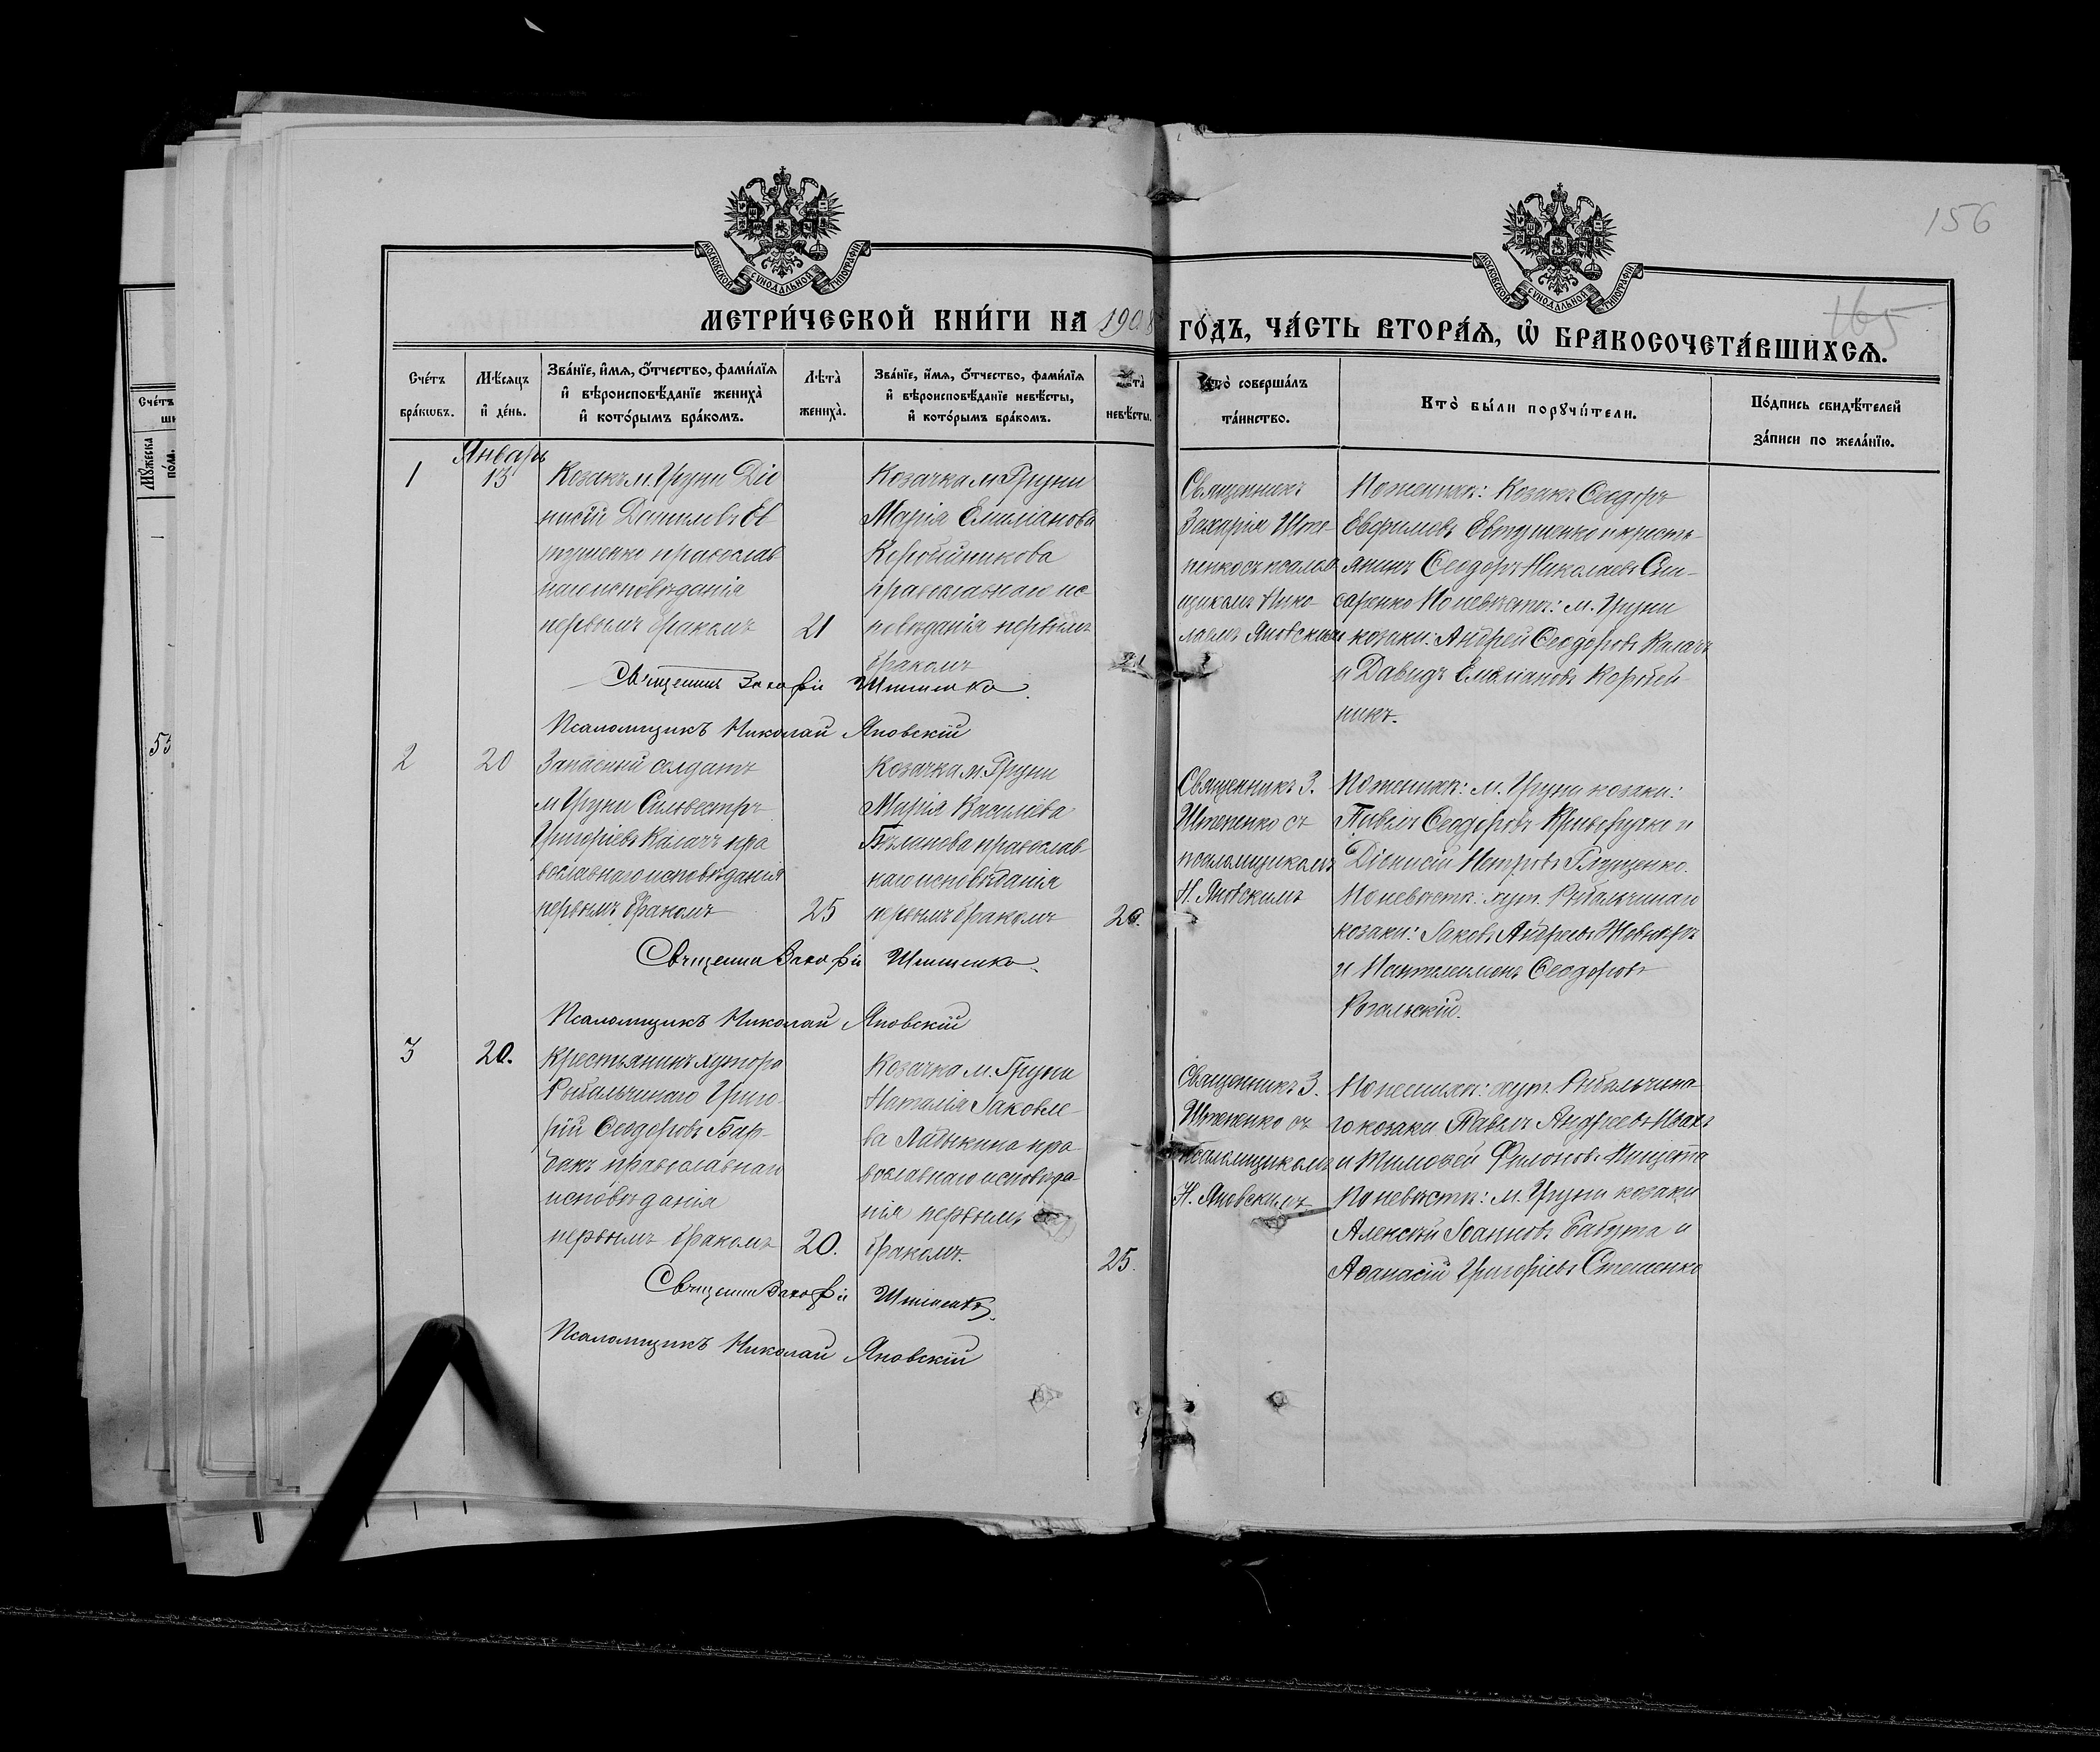 156
165
МОСКОВСКОЙ СѴНОДАЛЬНОЙ ТИПОГРАФІИ
МОСКОВСКОЙ СѴНОДАЛЬНОЙ ТИПОГРАФІИ
МЕТРИ́ЧЕСКОЙ КНИ́ГИ НА 1908 ГО́ДЪ, ЧА́СТЬ ВТОРА́Ѧ, Ѡ҆ БРАКОСОЧЕТА́ВШИХСѦ.
Сче́тъ бра́кѡвъ.
Мѣ́сѧцъ и҆ де́нь.
Зва́нїе, и҆́мѧ, ѻ҆́тчество, фами́лїѧ
и҆ вѣроисповѣ́данїе жениха̀
и҆ кото́рымъ бра́комъ.
Лѣта̀ жениха̀.
Зва́нїе, и҆́мѧ, ѻ҆́тчество, фами́лїѧ
и҆ вѣроисповѣ́данїе невѣ́сты,
и҆ кото́рымъ бра́комъ.
невѣ́сты.
Кто̀ соверша́лъ
та́инство.
Кто̀ бы́ли порꙋчи́тели.
По́дпись свидѣ́телей
за́писи по жела́нїю.
1
Январь
13
Козакъ м. Груни Діо
нисій Даниловъ Ев
тушенко православ
наго исповѣданія
первымъ бракомъ
21
Козачка м. Груни
Марія Емиліанова
Коробейникова
православнаго ис-
повѣданія первымъ
бракомъ
21
Священникъ
Захарія Ште-
пенко съ псалом
щикомъ Нико-
лаемъ Яновскимъ
По женихѣ: Козакъ Ѳеодоръ
Евфимовъ Евтушенко и кресть-
янинъ Ѳеодоръ Николаевъ
По невѣстѣ: м. Груни
козаки: Андрей Ѳеодоровъ Калачъ
и Давидъ Емиліановъ Коробей
никъ.
Священникъ Захарій Штепенко
Псаломщикъ Николай Яновскій
2
20
Запасный солдатъ
м. Груни Сильвестръ
Григоріевъ Калачъ пра
вославнаго исповѣданія
первымъ бракомъ
25
Козачка м. Груни
Марія Василіева
православ-
наго исповѣданія
первымъ бракомъ
20.
Священникъ З.
Штепенко съ
псаломщикомъ
Н. Яновскимъ
По женихѣ: м. Груни козаки:
Павелъ Ѳеодоровъ Криворучко и
Діонисій Петровъ Глущенко.
По невѣстѣ: хут. Рыбальчинаго
козаки: Іаковъ Андреевъ Жовнѣръ
и Пантелеимонъ Ѳеодоровъ
Рогальскій.
Священникъ Захарій Штепенко
Псаломщикъ Николай Яновскій
3
20.
Крестьянинъ хутора
Рыбальчинаго Григо-
рій Ѳеодоровъ Бар-
бакъ православнаго
исповѣданія
первымъ бракомъ
20.
Козачка м. Груни
Наталія Іаковле-
ва Лабыкина пра
вославнаго исповѣда
нія первымъ
бракомъ.
25.
Священникъ З.
Штепенко съ
псаломщикомъ
Н. Яновскимъ
По женихѣ: хут. Рыбальчина-
го козаки Павелъ Андреевъ
и Тимоѳей Филоновъ
По невѣстѣ: м. Груни козаки
Алексѣй Іоанновъ Бабута и
Аѳанасій Григоріевъ Стешенко
Священникъ Захарій Штепенко
Псаломщикъ Николай Яновскій